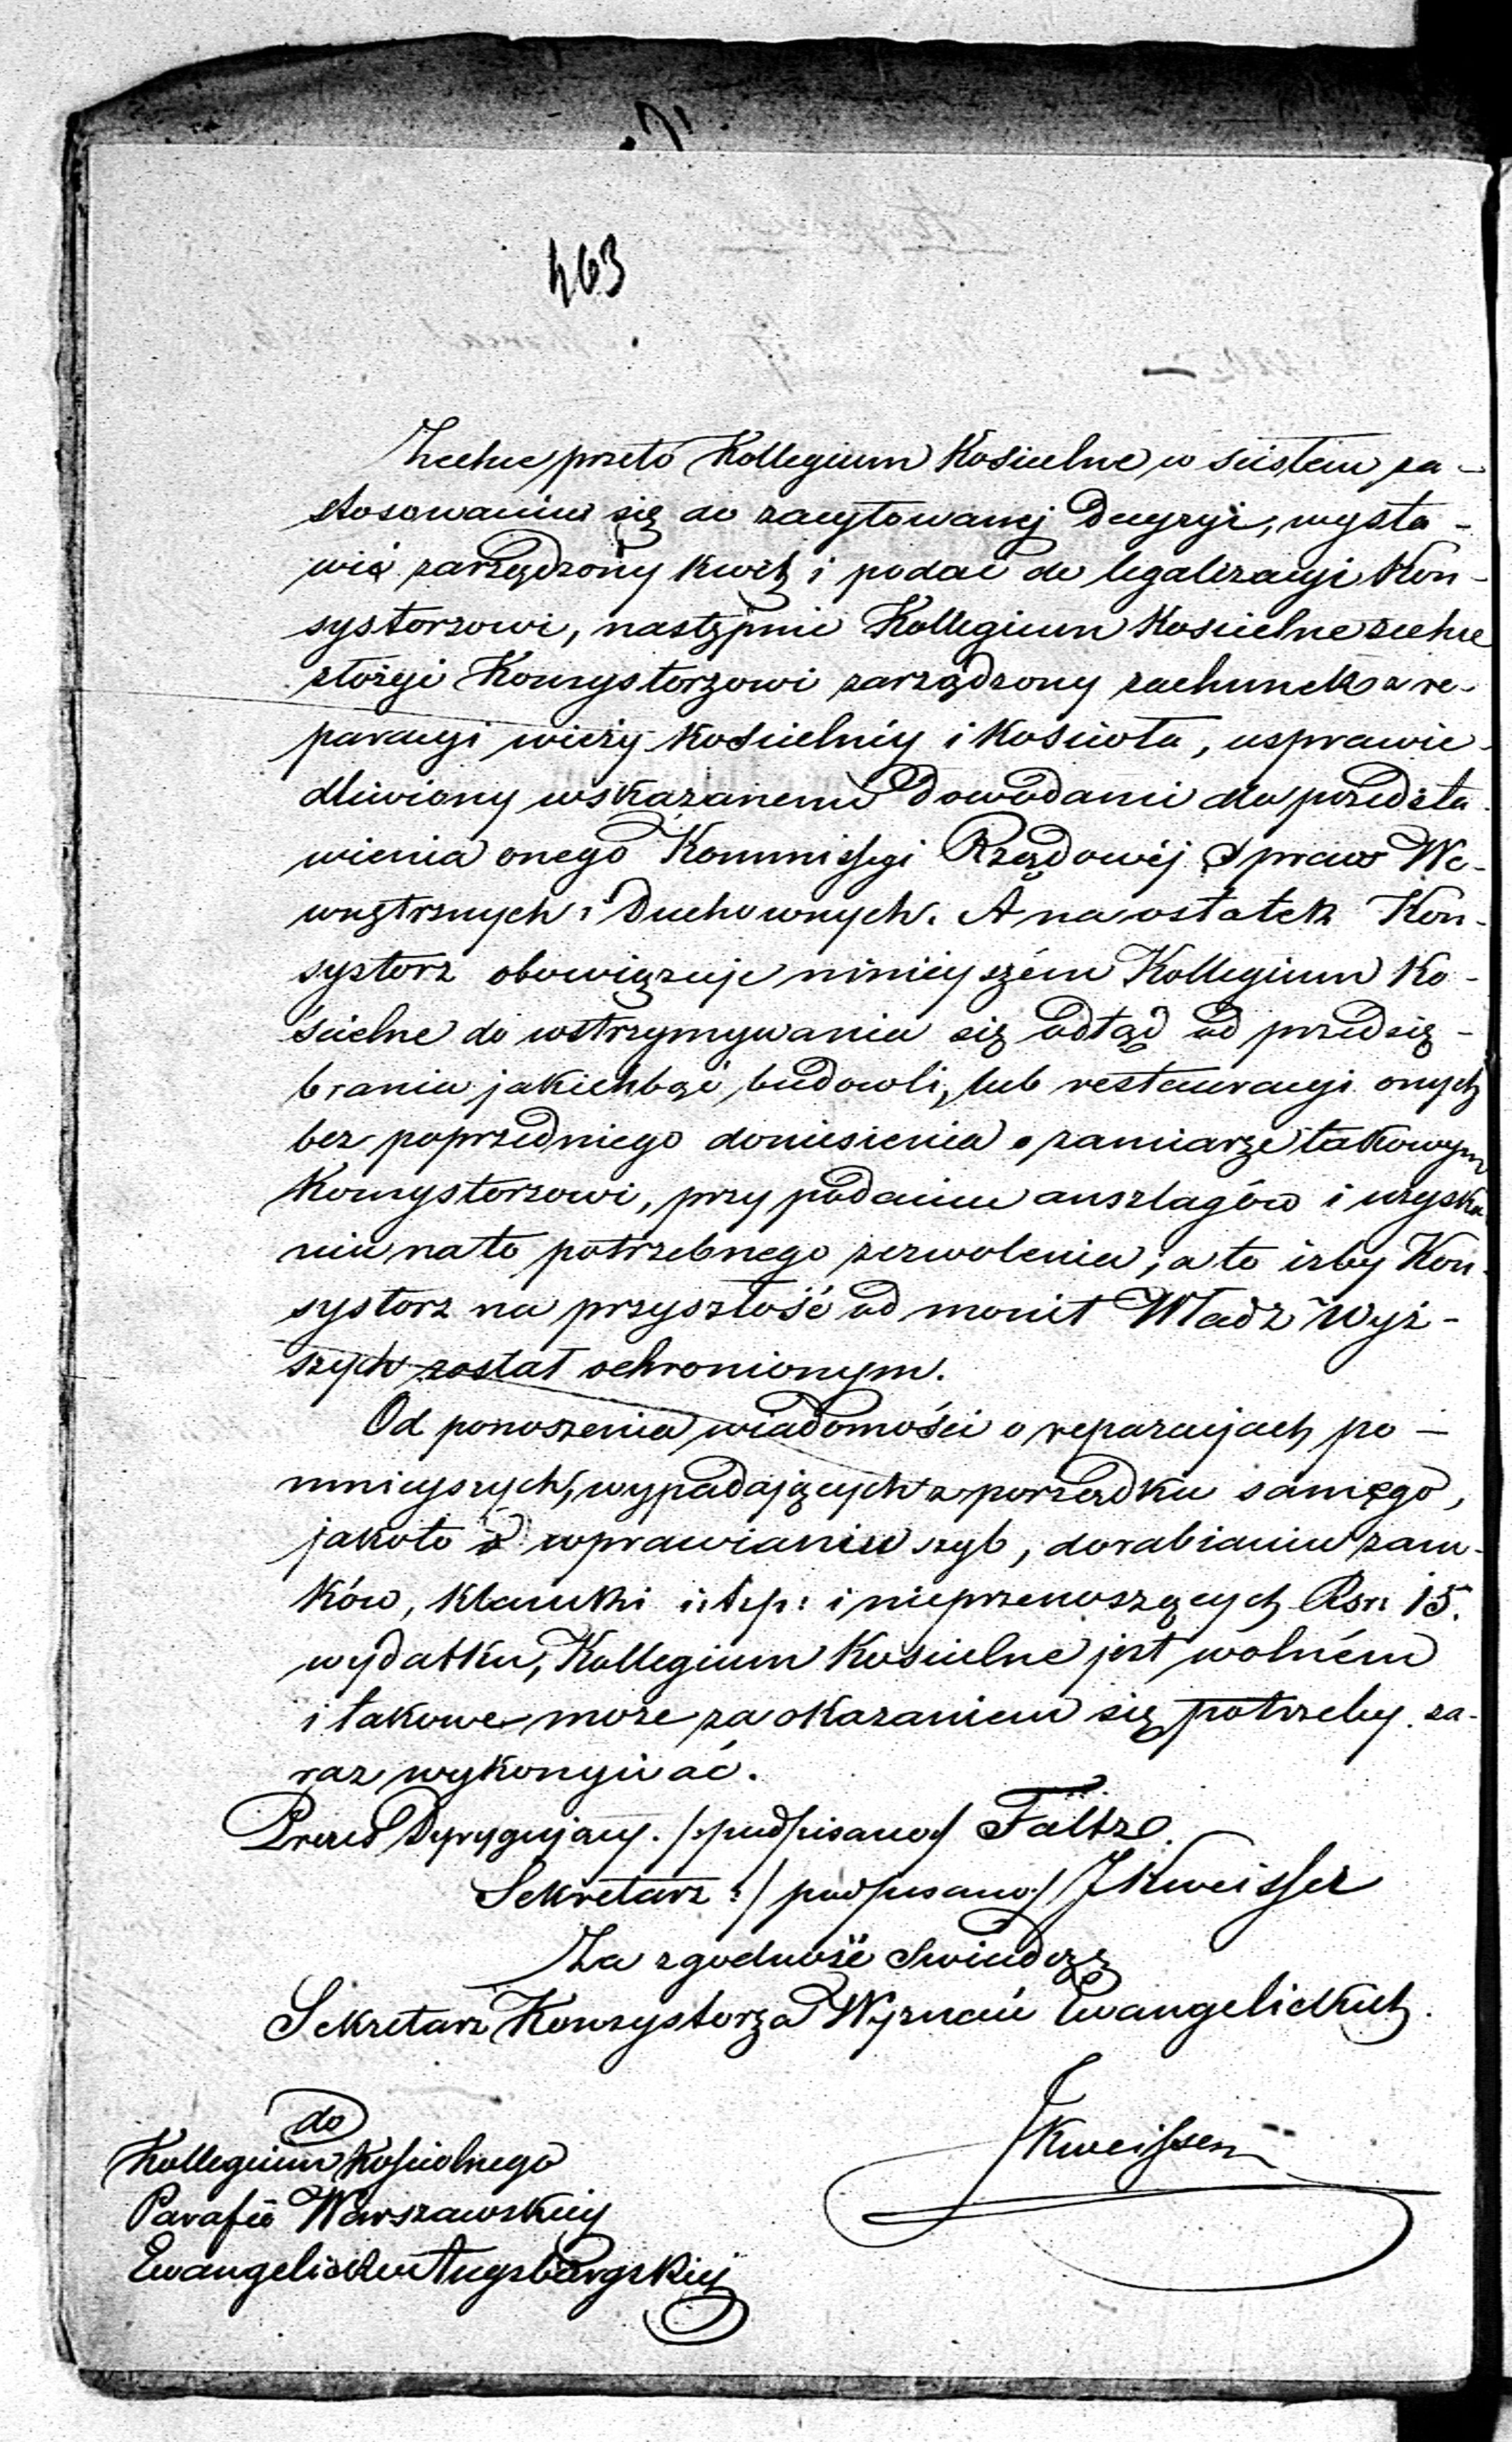 463
Zechce przeto Kollegium Kościelne w ścisłem za-
stosowaniu się do zacytowanej Decyzyi, wysta-
wić zarządzony kwit i podać do legalizacyi Kon-
systorzowi, następnie Kollegium Kościelne zechce
złożyć Konsystorzowi zarządzony rachunek z re-
paracyi wieży Kościelnéy i Kościoła, usprawie-
dliwiony wskazanemi Dowodami dla przedsta-
wienia onego Kommissyi Rządowéj Spraw We-
wnętrznych i Duchownych. A na ostatek Kon-
systorz obowiązuje niniéyszém Kollegium Ko-
ścielne do wstrzymywania się odtąd od przedsię-
brania jakichbąć budowli, lub restauracyi onych
bez poprzedniego doniesienia o zamiarze takowym
Konsystorzowi, przy podaniu anszlagów i uzyska
niu na to potrzebnego zezwolenia; a to iżby Kon-
systorz na przyszłość od monit Władz Wyż-
szych został ochronionym.
Od ponoszenia wiadomości o reparacyjach po-
mnieyszych, wypadających z porządku samego,
jakoto o wprawianiu szyb, dorabianiu zam-
ków, klamki i t. p: i nieprzenoszących Rsr: 15.
wydatku, Kollegium Kościelne jest wolném
i takowe może za okazaniem się potrzeby za-
raz wykonywać.
Prezes Dyrygujący. /:podpisano:/ Faltz.
Sekretarz :/ podpisano:/ J Kweisser
Za zgodność Swiadczę
Sekretarz Konsystorza Wyznań Ewangelickich.
JKweisser
do
Kollegium Kościelnego
Parafii Warszawskiéy
Ewangelicko Augsburgskiéj